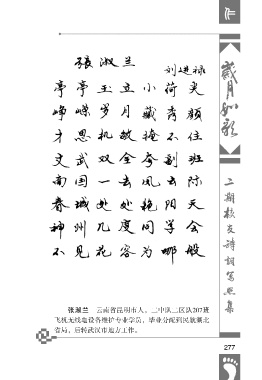 张淑兰
刘进禄
亭亭玉立小荷尖
峥嵘岁月藏秀颜
才思机敏掩不住
文武双全夸到班
南国一去风云际
春城处处艳阳天
神州几度同学会
不见花容为哪般
张淑兰 云南省昆明市人。二中队二区队207班
飞机无线电设备维护专业学员，毕业分配到民航湖北
省局，后转武汉市地方工作。
岁月如歌
二期校友诗词写照集
277